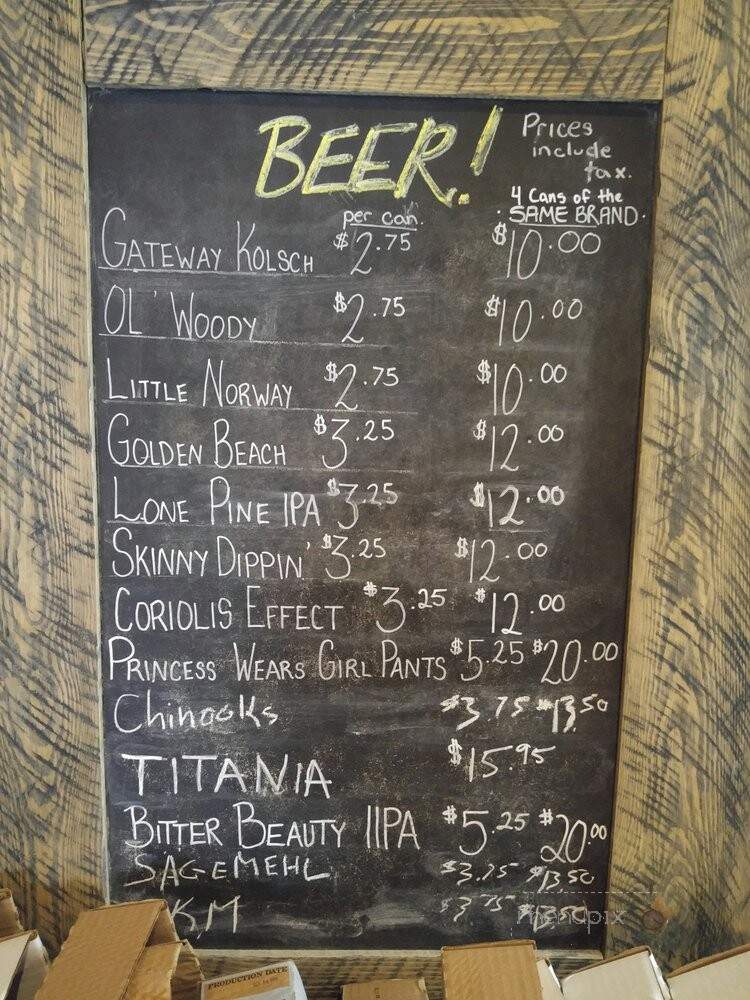 BEER!
Prices
include
tax.
per can.
4 Cans of the
SAME BRAND.
GATEWAY KOLSCH $2.75 $10.00
OL' WOODY $2.75 $10.00
LITTLE NORWAY $2.75 $10.00
GOLDEN BEACH $3.25 $12.00
LONE PINE IPA $3.25 $12.00
SKINNY DIPPIN' $3.25 $12.00
CORIOLIS EFFECT $3.25 $12.00
PRINCESS WEARS GIRL PANTS $5.25 $20.00
Chinooks $3.75 $13.50
TITANIA $15.95
BITTER BEAUTY IIPA $5.25 $20.00
SAGEMEHL $3.75 $13.50
KM $3.75 $13.50
menupix
PRODUCTION DATE